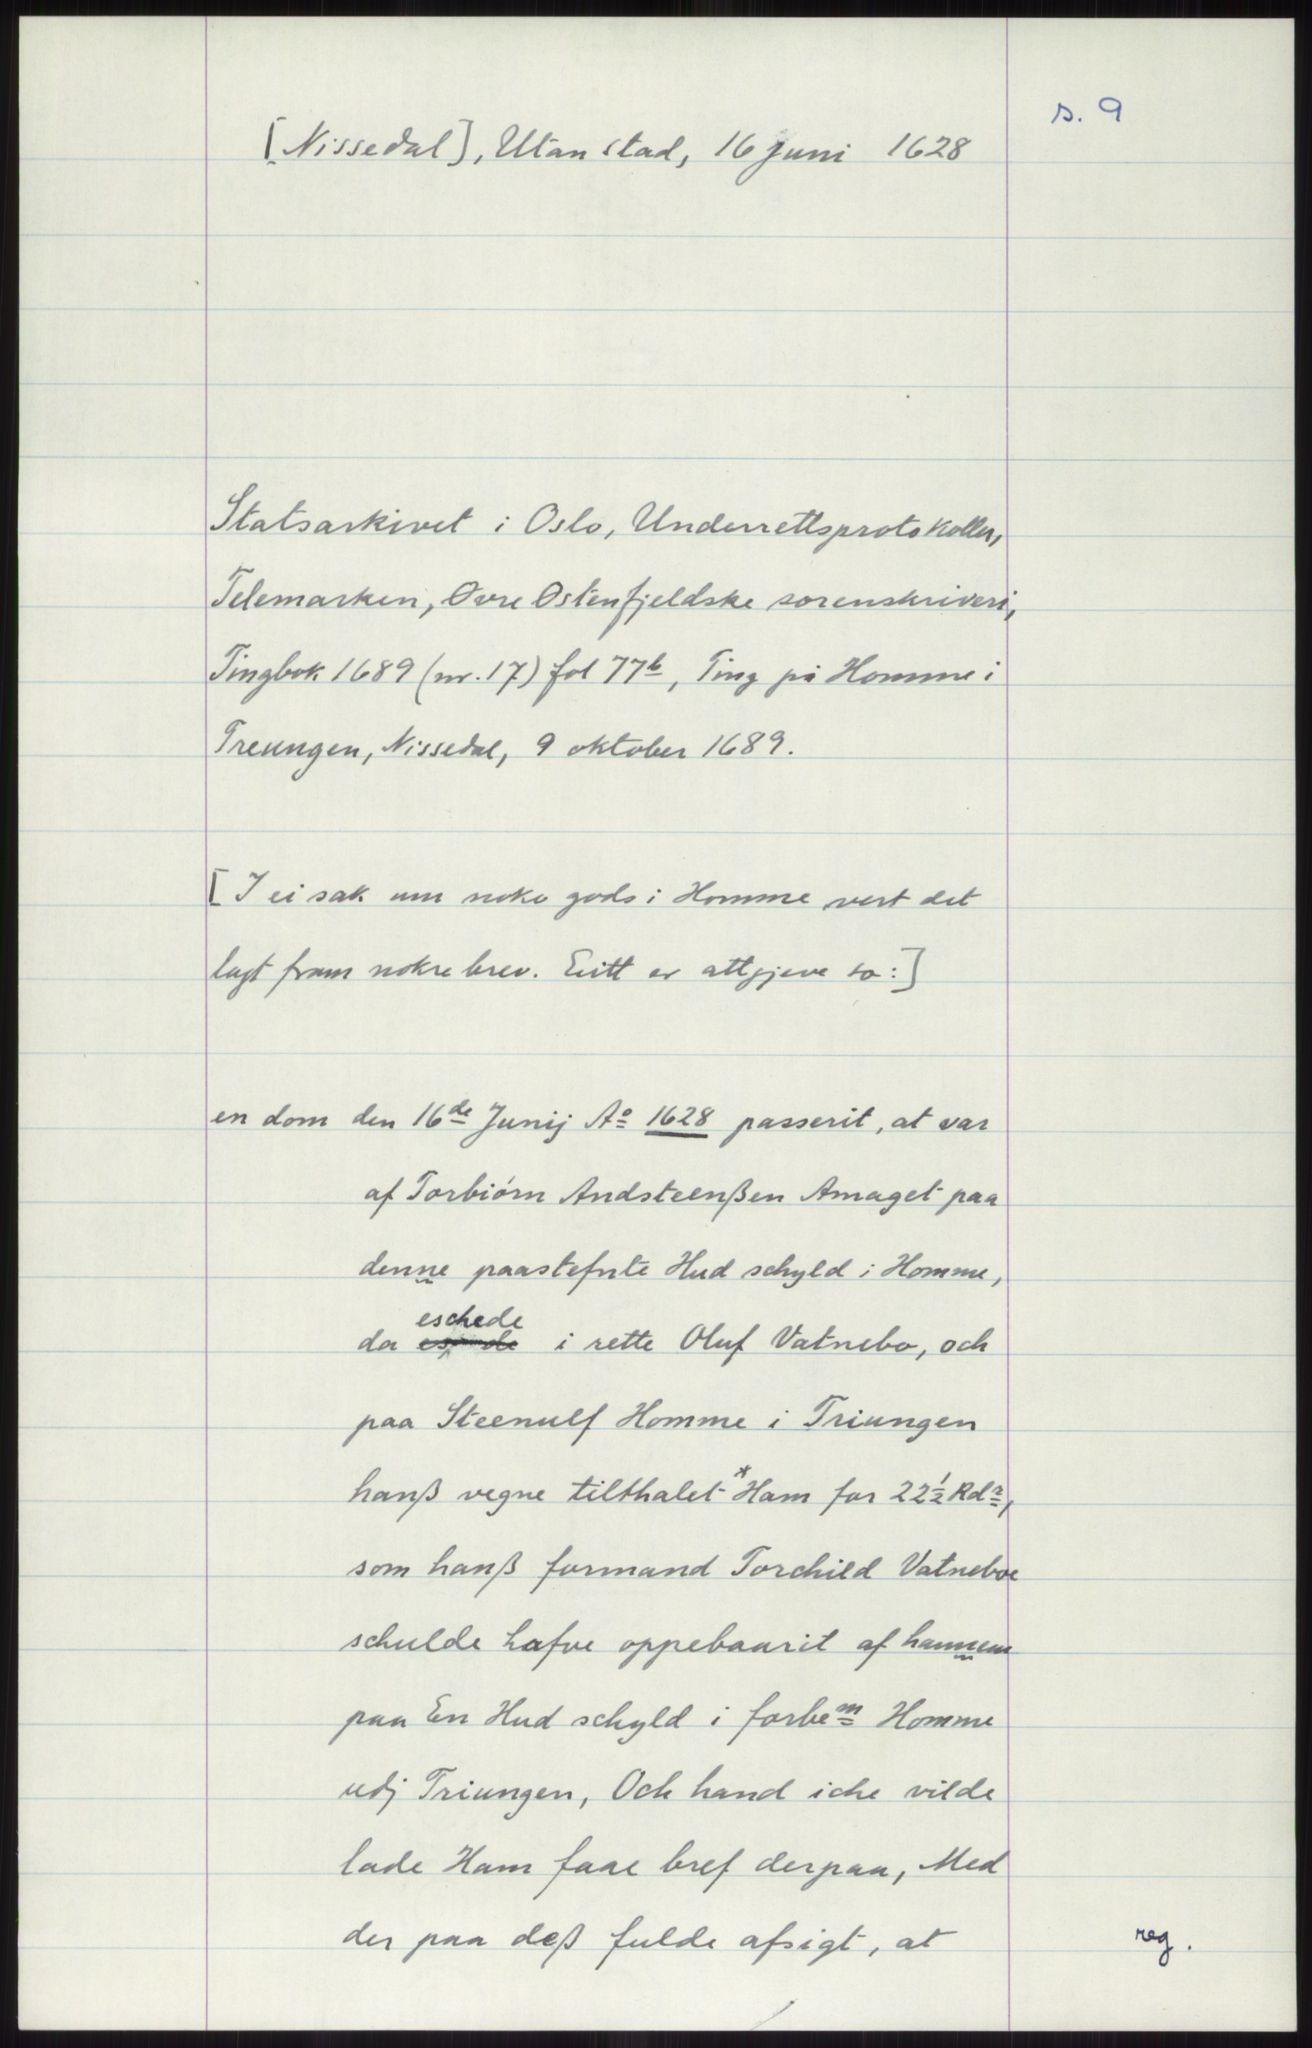 s. 9
[Nissedal], Utan stad, 16 juni 1628
Statsarkivet i Oslo, Underrettsprotokoller,
Telemarken, Øvre Østenfjeldske sorenskriveri,
Tingbok 1689 (nr. 17) fol 77b, Ting på Homme i
Treungen, Nissedal, 9 oktober 1689.
[I ei sak um noko gods i Homme vert det
lagt fram nokre brev. Eitt er attgjeve so:]
en dom den 16de Junij Ao 1628 passerit, at var
af Torbiørn Andsteenßen Amaget paa
denne paastefnte Hud schyld i Homme,
eschede
da i rette Oluf Vatnebo, och
paa Steenulf Homme i Triungen
hanß vegne tilthalet *Ham for 22½ Rdr,
som hanß formand Torchild Vatneboe
schulde hafve oppebaarit af hannem
paa En Hud schyld i forbem Homme
udj Triungen, Och hand iche vilde
lade Ham faae bref derpaa, Med
der paa deß fulde afsigt, at
reg.